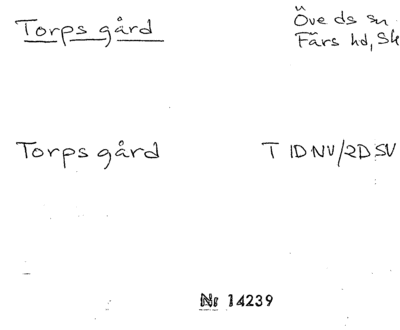 Torps gård
Öve ds sn
Färs hd, Sk
Torps gård T 1D NV/2D SV
Nr 14239